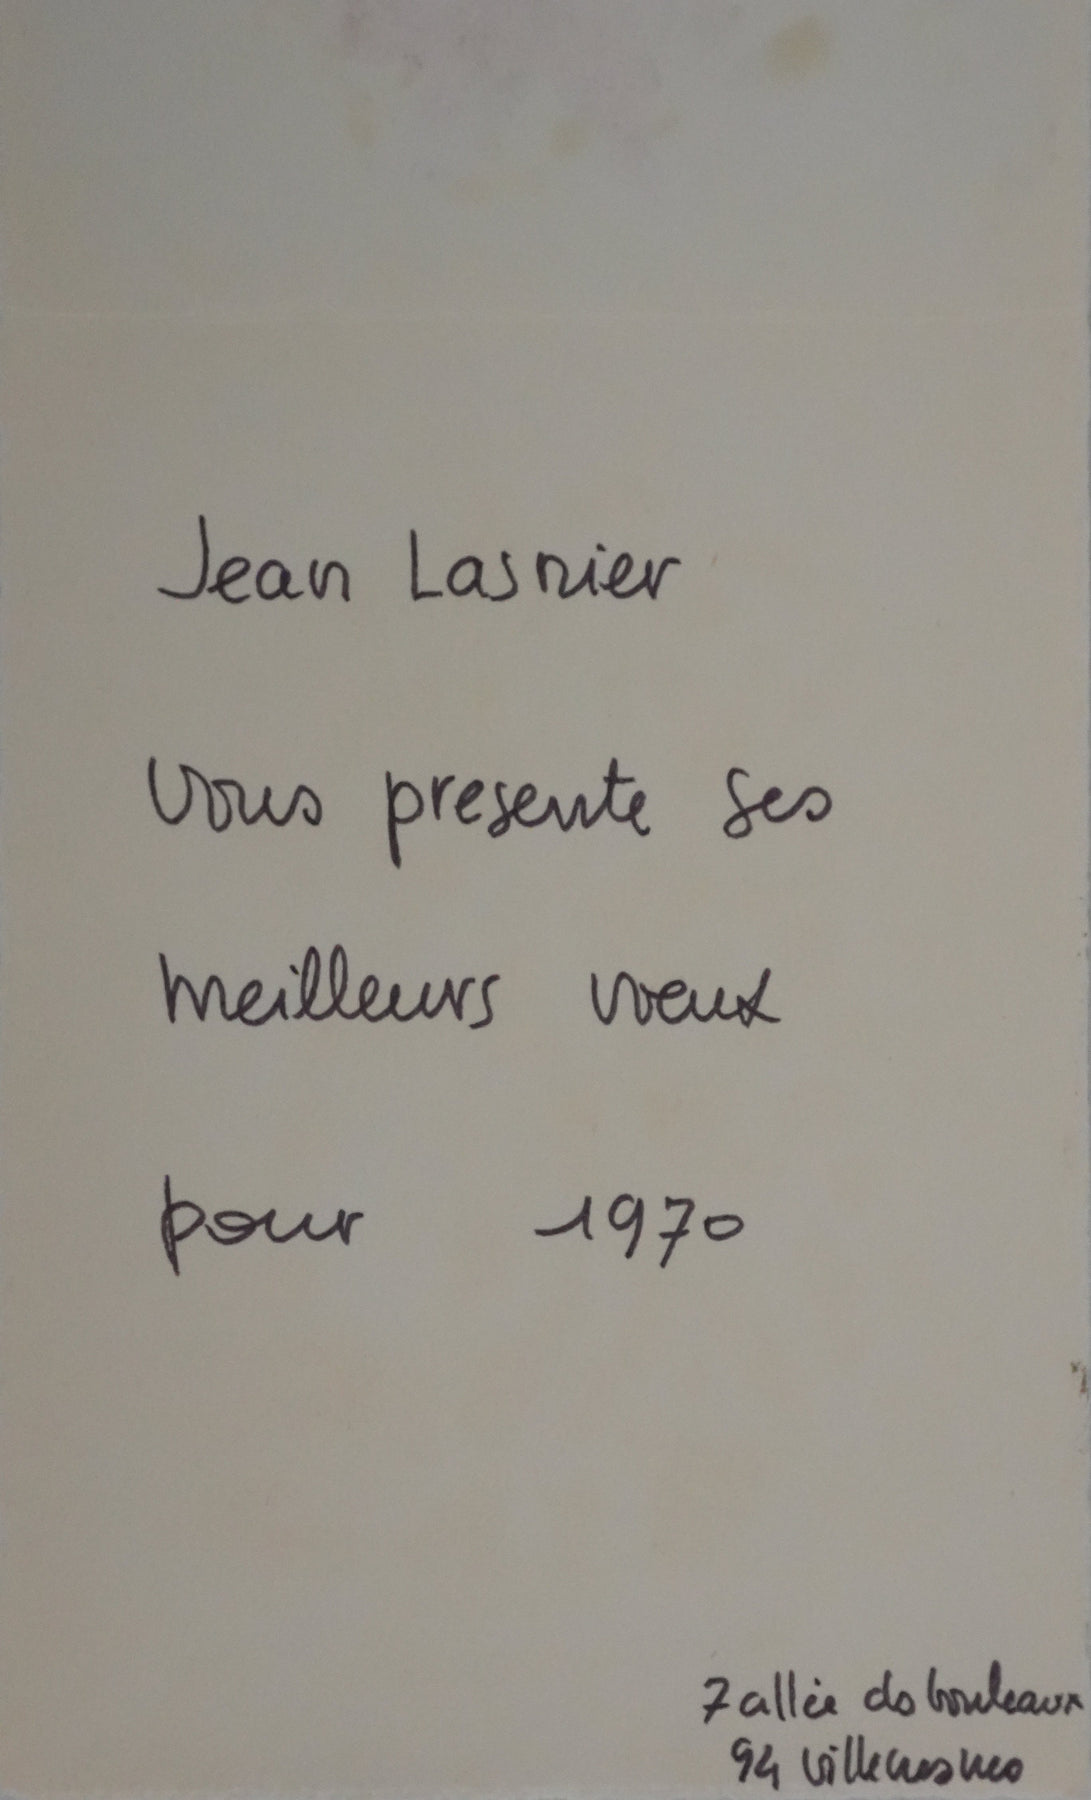 Jean Lasnier
Vous presente ses
meilleurs voeux
pour 1970
7 allée des bouleaux
94 Villecresnes